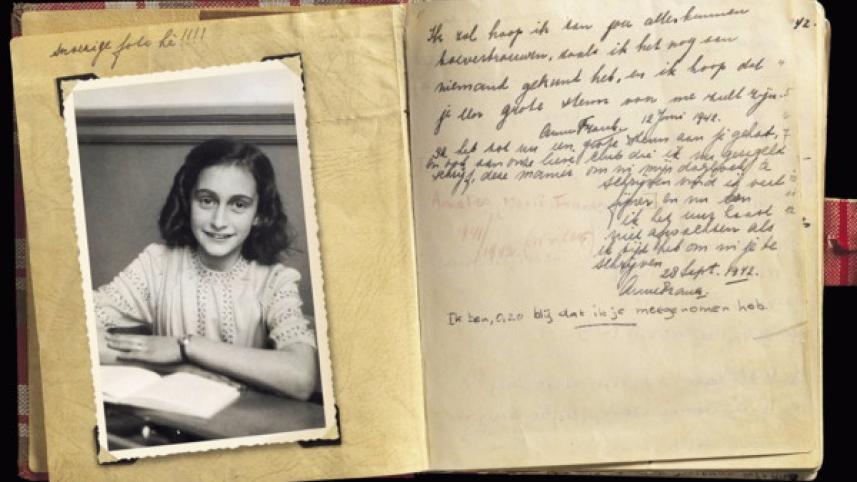 snoezige foto hè!!!!
42.
Ik zal hoop ik aan jou alles kunnen
toevertrouwen, zoals ik het nog aan
niemand gekund heb, en ik hoop dat
je een grote steun voor me zult zijn.
Anne Frank. 12 Juni 1942.
Ik heb tot nu een grote steun aan je gehad,
en ook aan onze lieve club die ik nu geregeld
schrijf, deze manier om in mijn dagboek te
schrijven vind ik veel
fijner en nu kan
ik het uur haast
niet afwachten als
ik tijd heb om in je te
schrijven.
28 Sept. 1942.
Anne Frank.
Ik ben, O, zo blij dat ik je meegenomen heb.